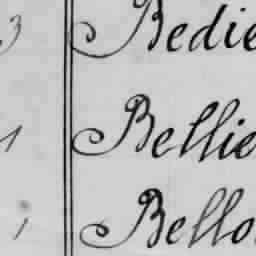 3 Bedie
1 Bellie
1 Bello